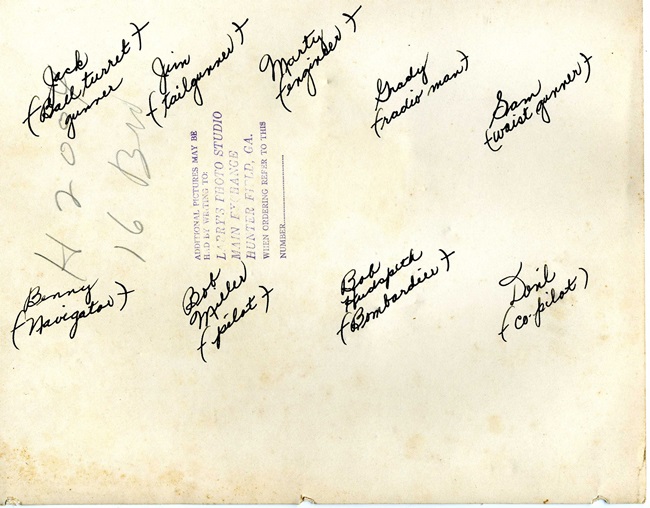 Jack
(Ball turret)
gunner
Jim
(tailgunner)
Marty
(engineer)
Grady
(radio man)
Sam
(waist gunner)
16 Brd
ADDITIONAL PICTURES MAY BE
HAD BY WRITING TO:
LARRY'S PHOTO STUDIO
MAIN EXCHANGE
HUNTER FIELD, GA.
WHEN ORDERING REFER TO THIS
NUMBER
Benny
(Navigator)
Bob
Miller
(pilot)
Bob
Hudspeth
(Bombardier)
(co-pilot)